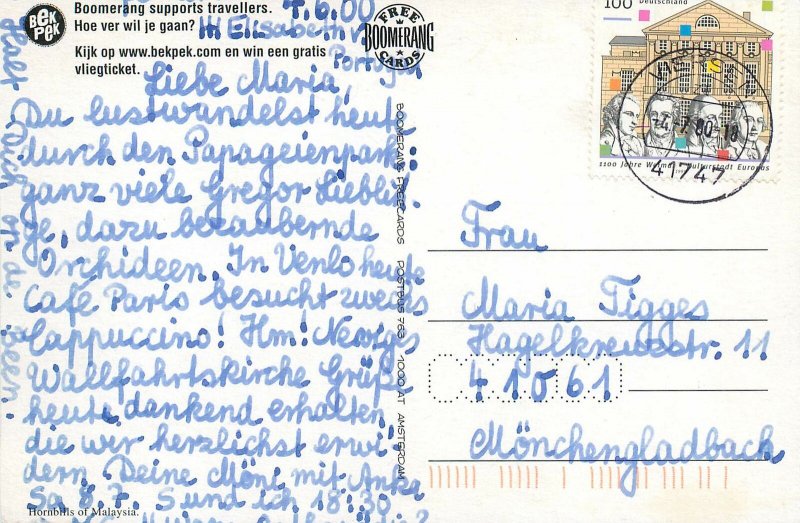 BEK PEK
Boomerang supports travellers.
Hoe ver wil je gaan?
Kijk op www.bekpek.com en win een gratis
vliegticket.
FREE
BOOMERANG
CARDS
4.6.00
Hl Elisabeth v
Portugal
Liebe Maria,
Du lustwandelst heute
durch den Papageienpark
ganz viele Gregor Lieblin
ge, dazu bezaubernde
Orchideen. In Venlo heute
Cafe Paris besucht zwecks
Cappuccino! Hm!
Wallfahrtskirche Grüße
heute dankend erhalten
die wir herzlichst erwi
dern Deine Möni mit Anka
Sa 8.7. S und ich 18.30
Halt Dich an de
Hornbills of Malaysia.
BOOMERANG FREECARDS POSTBUS 763 1000 AT AMSTERDAM
100
Deutschland
1100 Jahre Weimar Kulturstadt Europas
41747
Frau
Maria Tigges
Hagelkreuzstr. 11
41061
Mönchengladbach